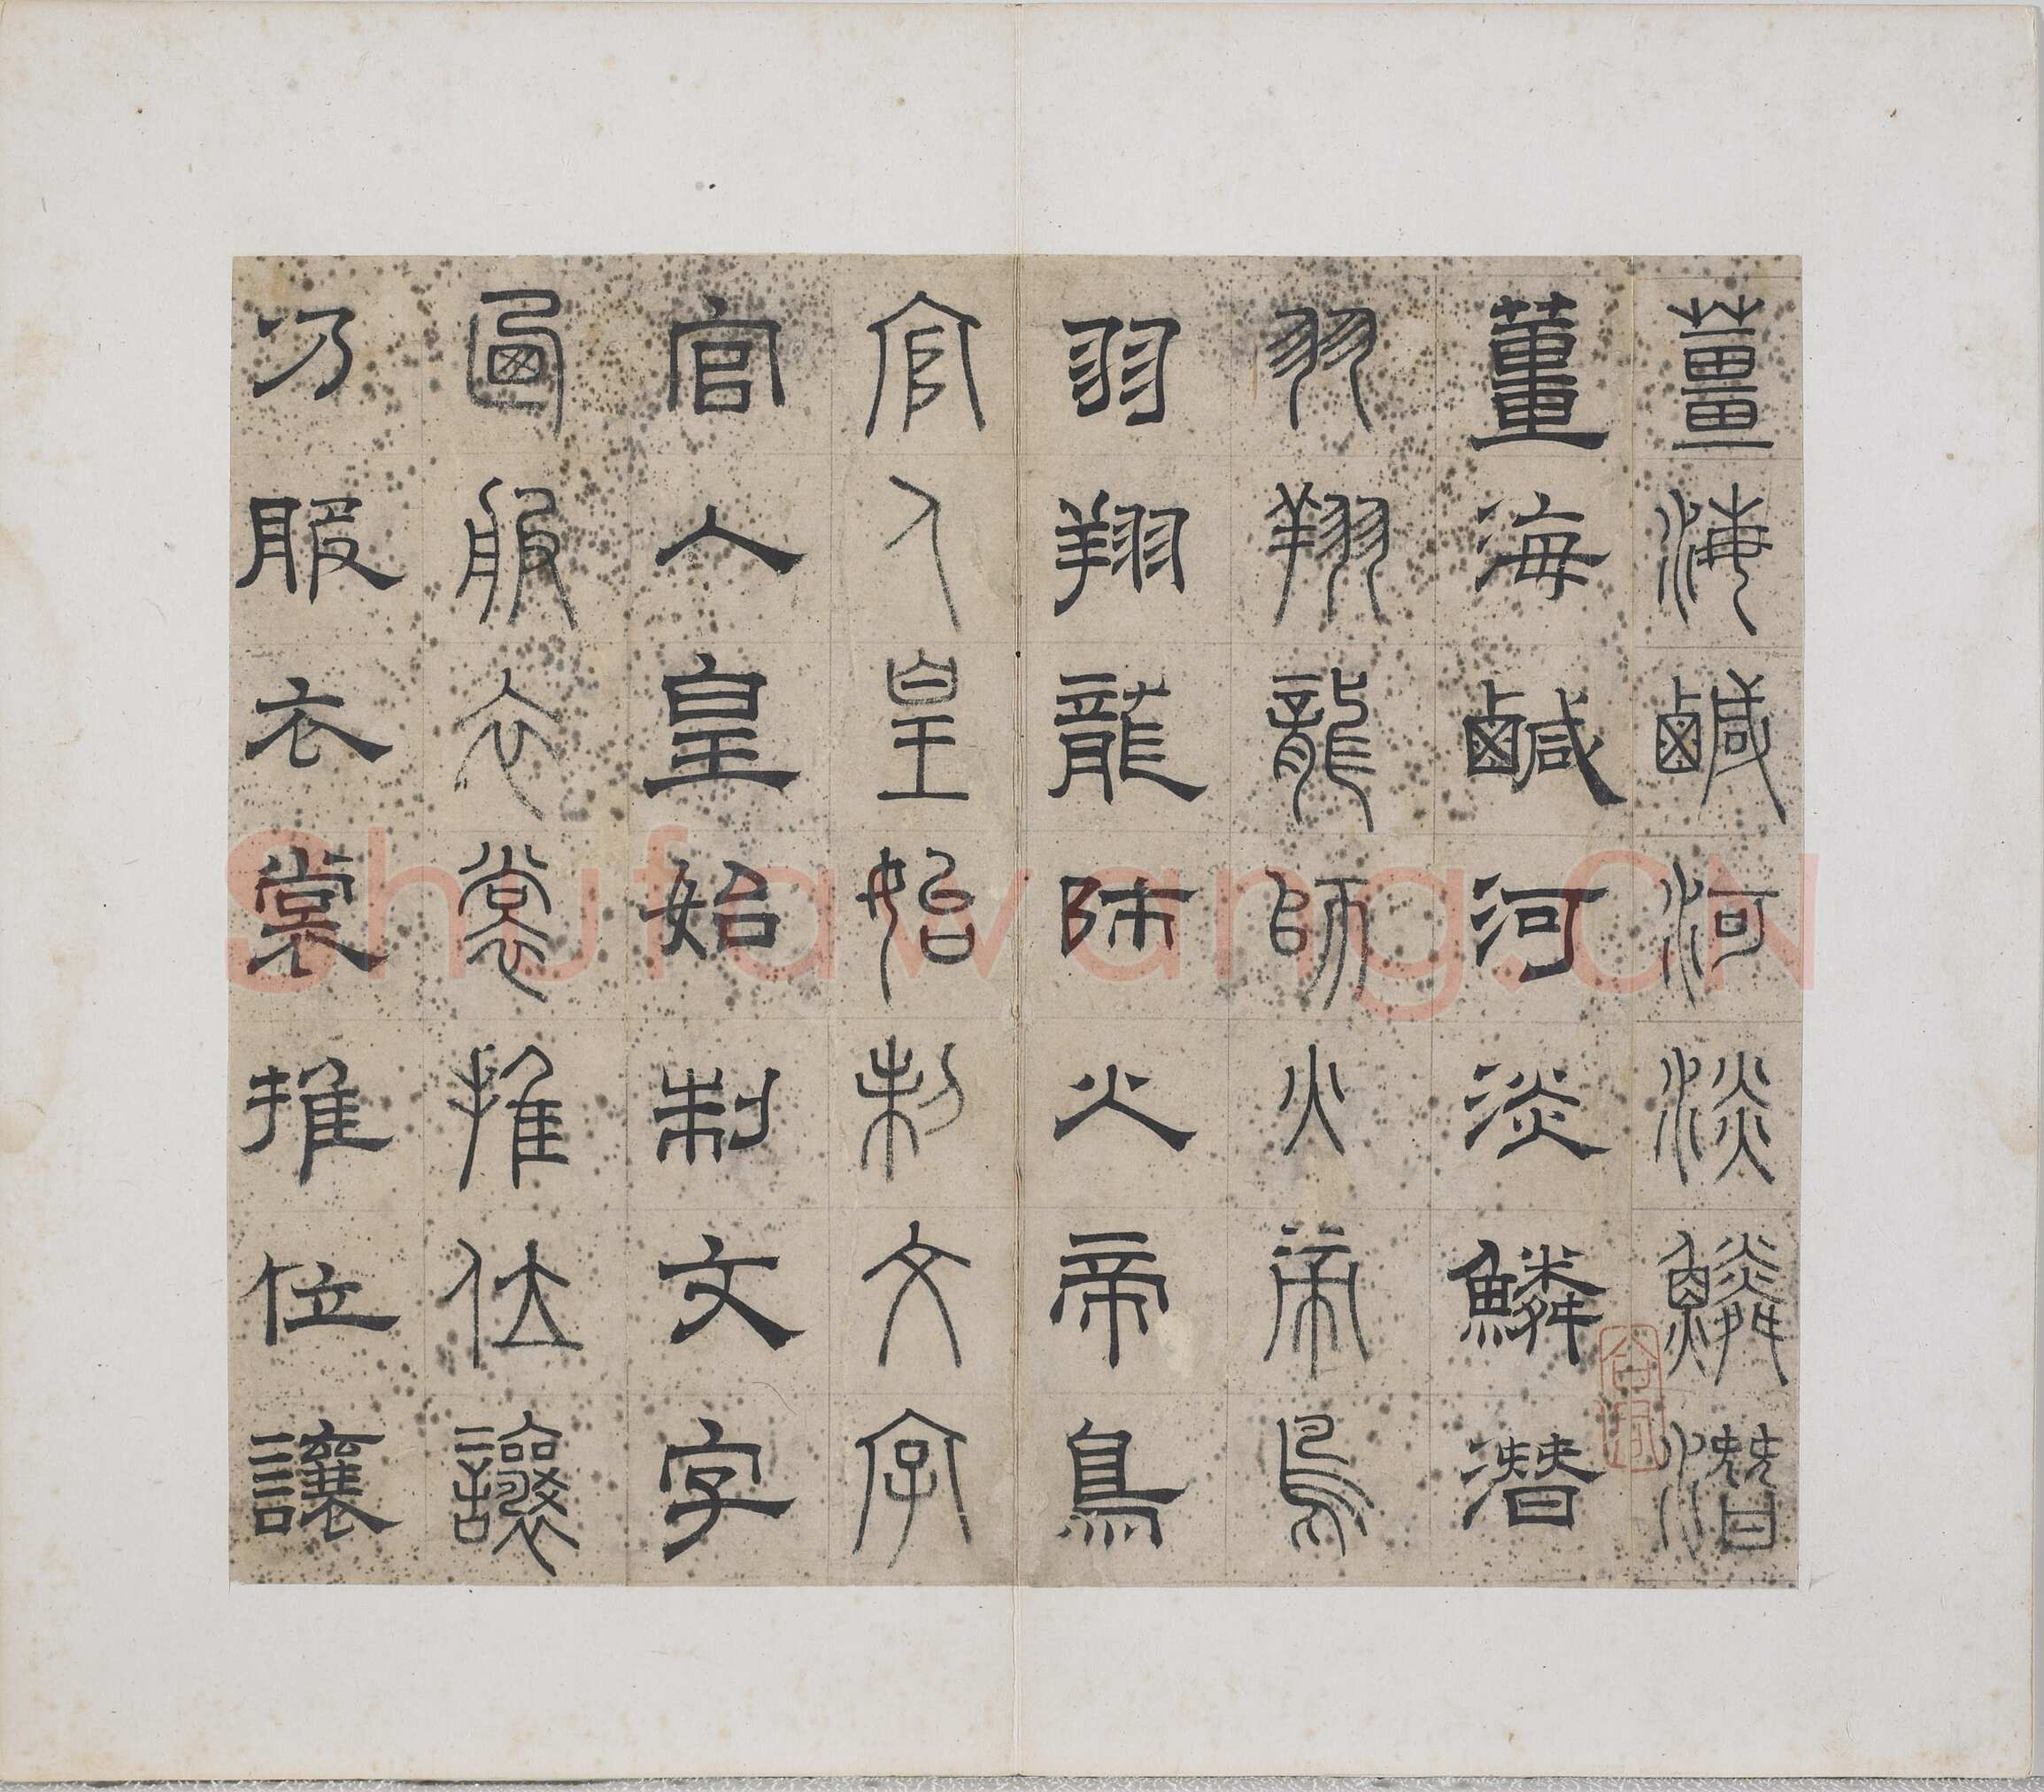 薑海鹹河淡鱗潛
薑海鹹河淡鱗潛
羽翔龍師火帝鳥
羽翔龍師火帝鳥
官人皇始制文字
官人皇始制文字
乃服衣裳推位讓
乃服衣裳推位讓
Shufawang.CN